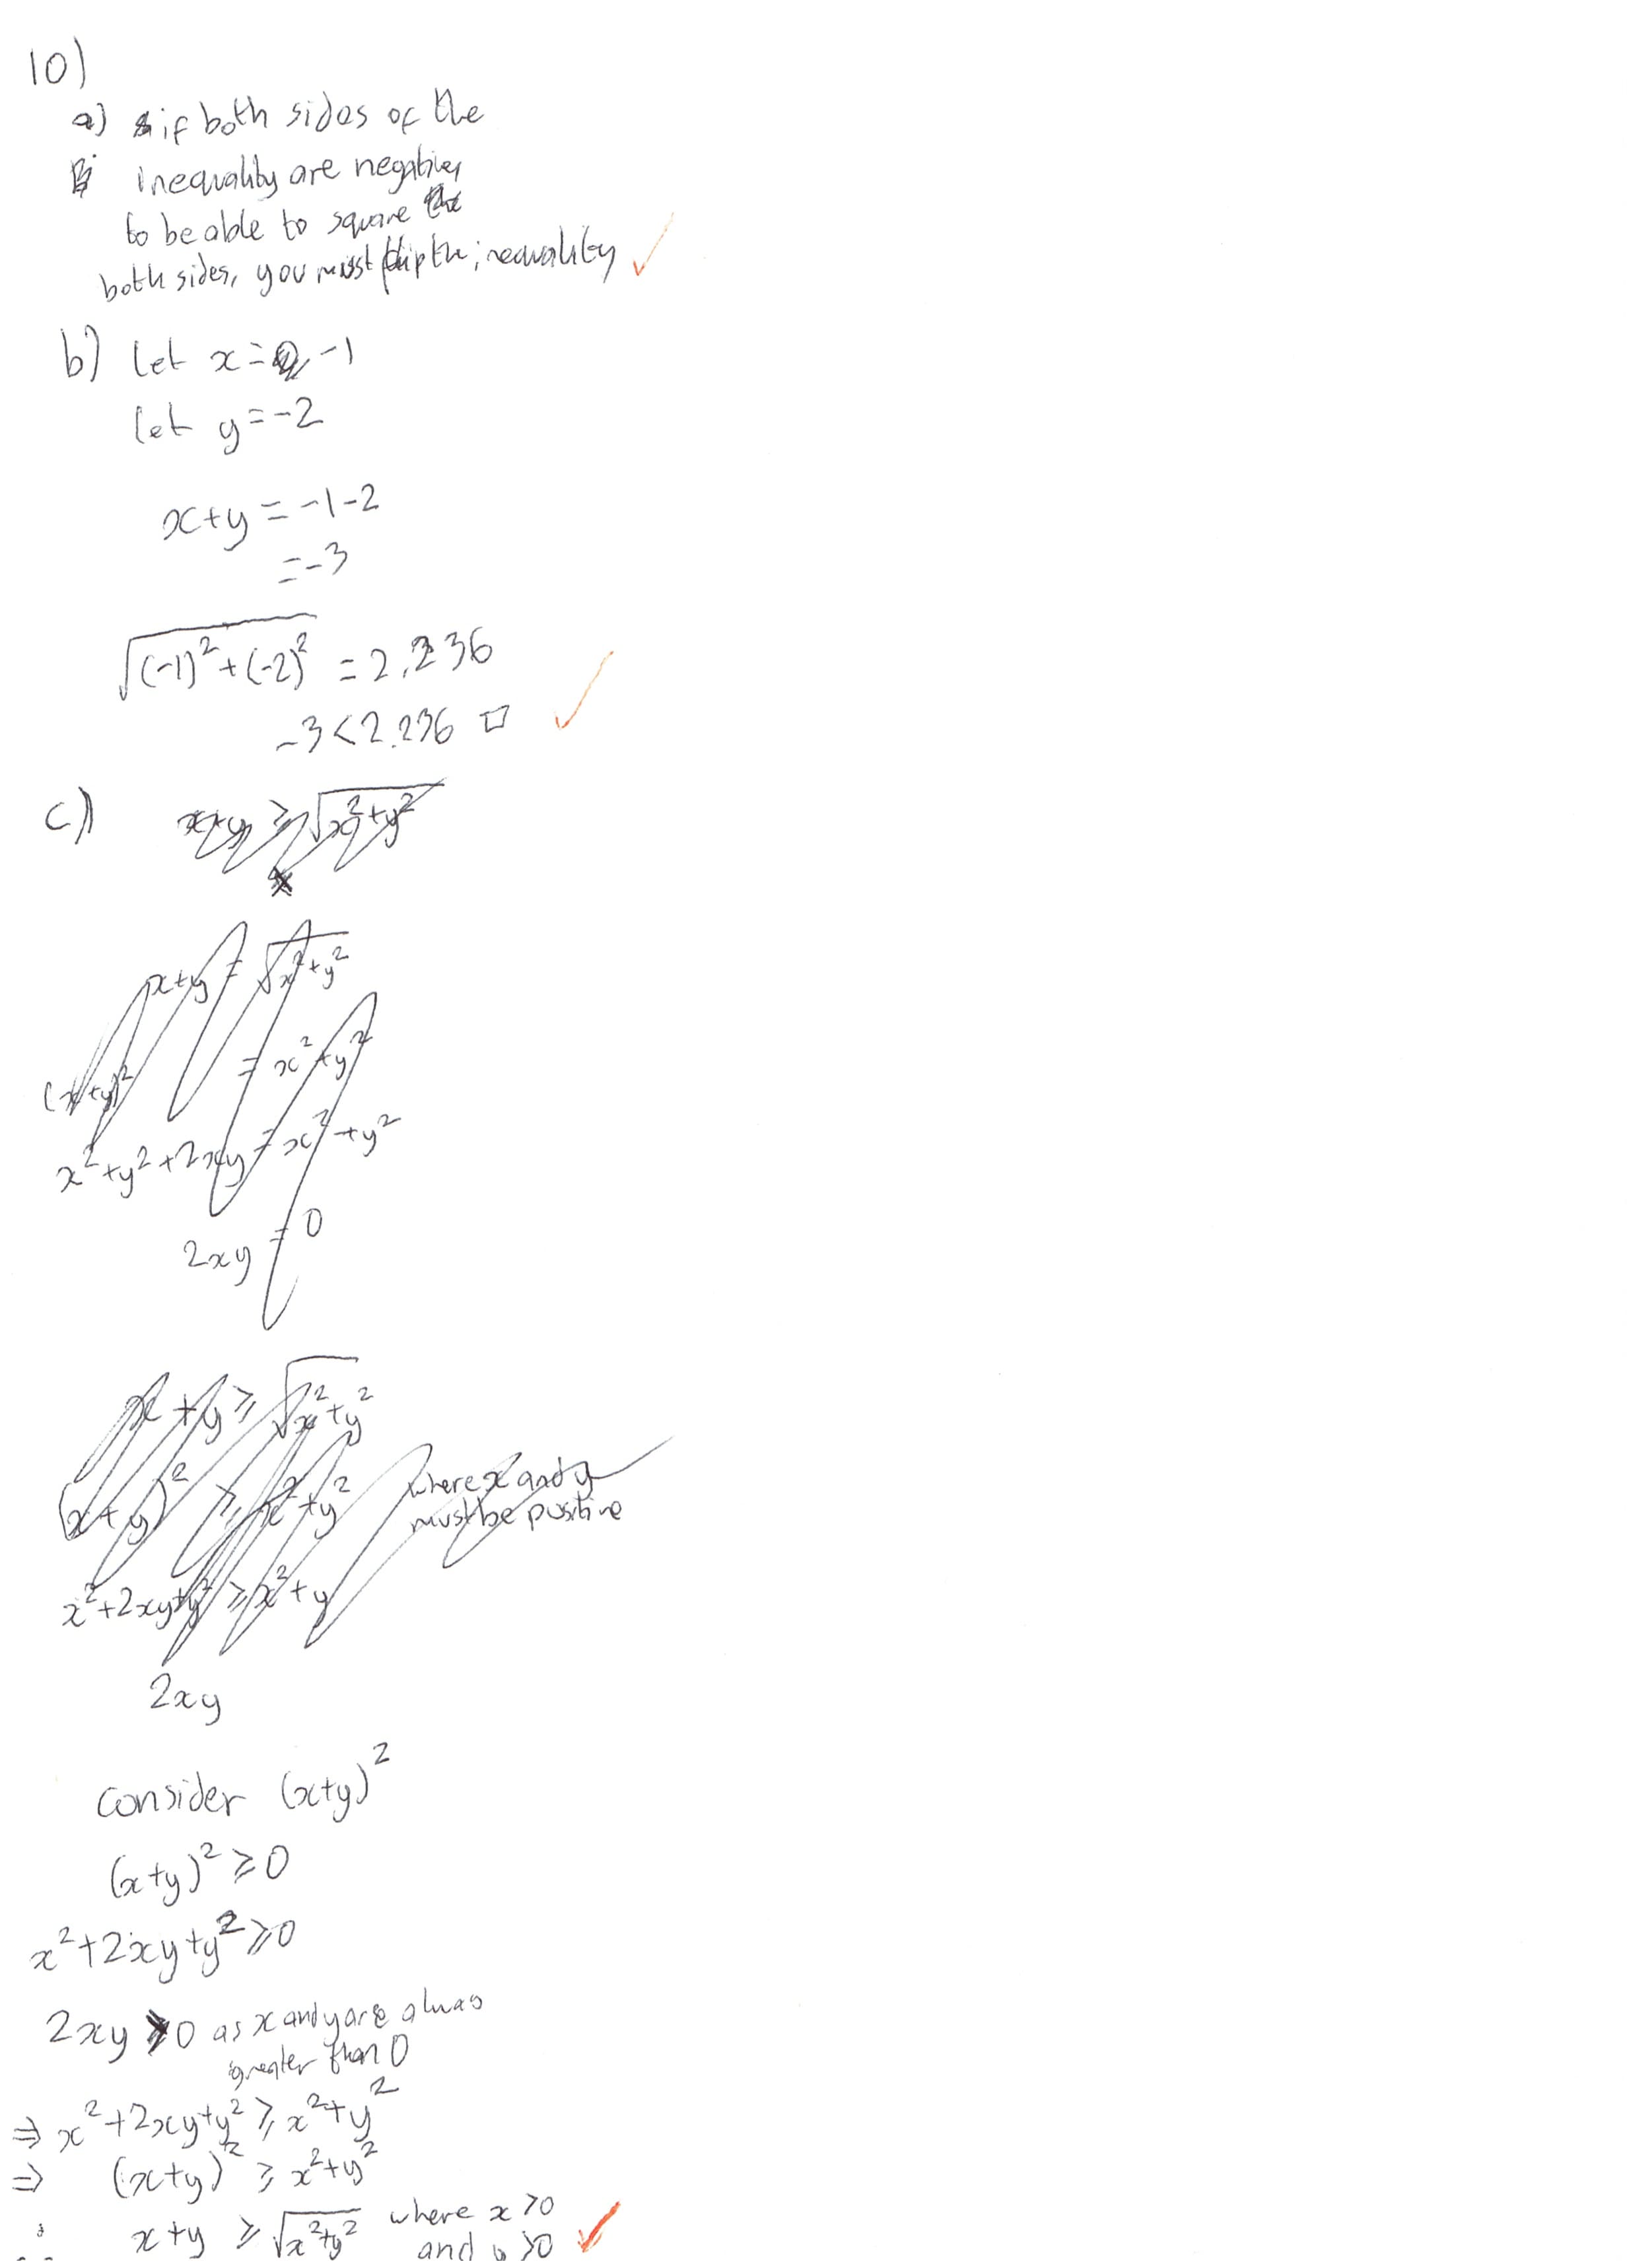 10)
a) if both sides of the
inequality are negative,
to be able to square
both sides, you must flip the inequality
b) let x = -1
let y = -2
x+y = -1-2
= -3
√((-1)²+(-2)²) = 2.236
-3 < 2.236 □
c) x+y ≥ √(x²+y²)
x+y = √(x²+y²)
(x+y)² = x²+y²
x²+y²+2xy = x²+y²
2xy = 0
x+y ≥ √(x²+y²)
(x+y)² ≥ x²+y² where x and y
must be positive
x²+2xy+y² ≥ x²+y
2xy
consider (x+y)²
(x+y)² ≥ 0
x²+2xy+y² ≥ 0
2xy > 0 as x and y are always
greater than 0
⇒ x²+2xy+y² ≥ x²+y²
⇒ (x+y)² ≥ x²+y²
∴ x+y ≥ √(x²+y²) where x > 0
and y > 0